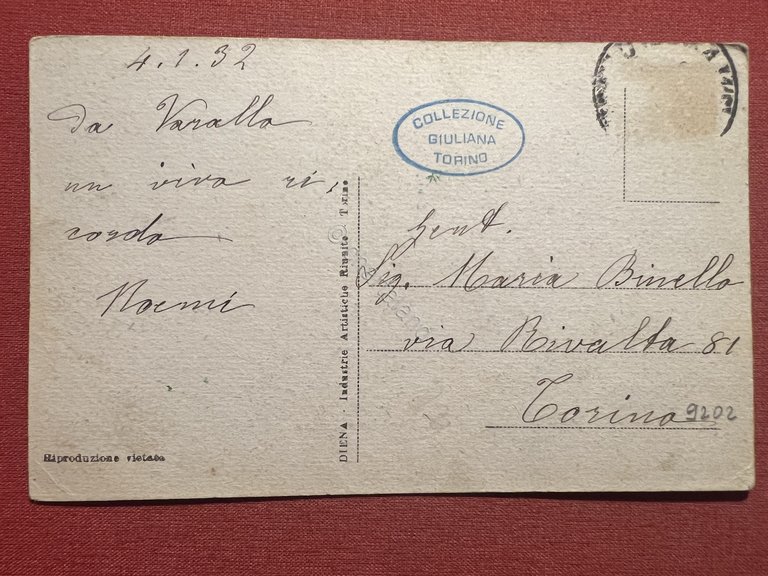 4.1.32
Da Varallo
un vivo ri,
cordo
Noemi
Riproduzione vietata
DIENA - Industrie Artistiche Riunite Torino
COLLEZIONE
GIULIANA
TORINO
Gent.
Sig. Maria Binello
via Rivalta 81
Torino
9202